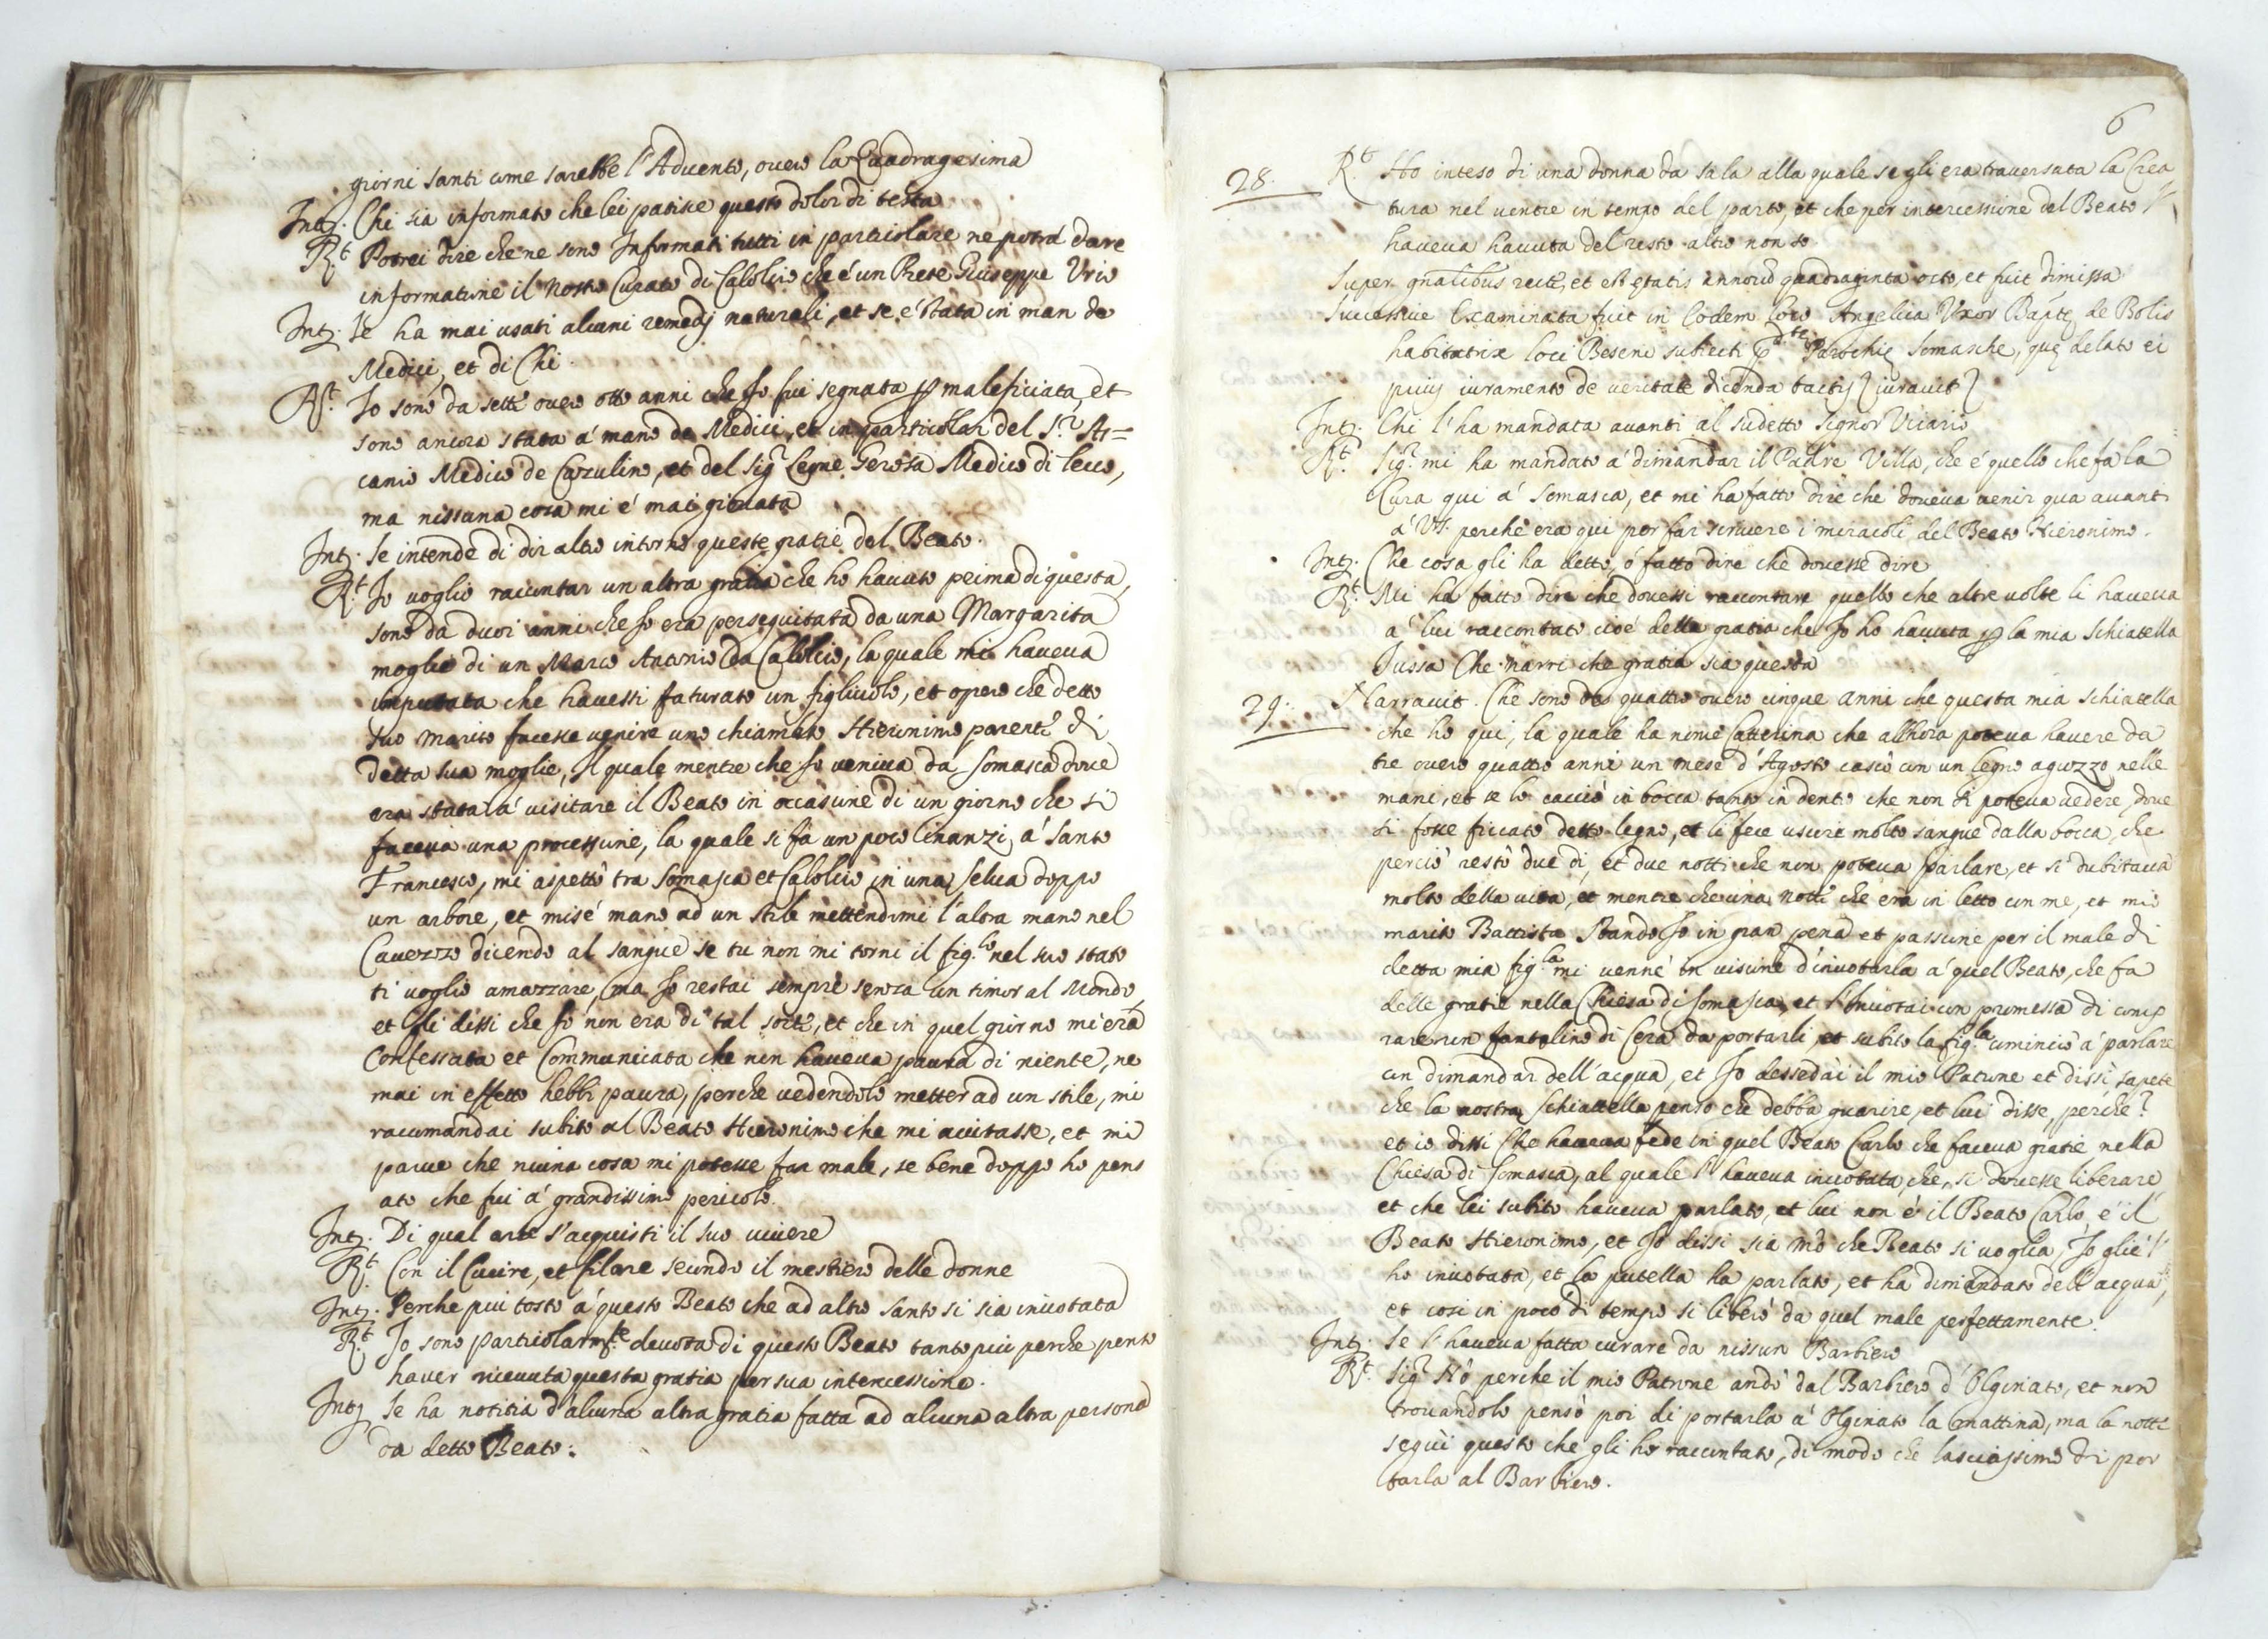 giorni santi come sarebbe l'Advento, overo la Quadragesima
Intg. Chi sia informato che lei patisce questo dolor di testa
Rt Potrei dire che ne sono Informati tutti in particolare ne potrà dare
informatione il nostro Curato di Calolcio che é un Prete Giuseppe Vrio
Intg. Se ha mai usati alcuni remedij naturali, et se é stata in man de
Medici, et di Chi.
Rt. Io sono da sette overo otto anni che Io fui segnata p maleficiata, et
sono ancora stata á mano de Medici, et in particolar del S.r As=
canio Medico de Carzulino, et del Sig.r Leone Gerosa Medico di lecco,
ma nissuna cosa mi é mai giovata
Intg. Se intende di dir altro intorno queste gratie del Beato.
Rt Io voglio raccontar un altra gratia che ho havuto peima di questa,
sono da duoi anni che Io era perseguitata da una Margarita
moglie di un Marco Antonio da Calolcio, la quale mi haveva
imputata che havessi faturato un figliuolo, et opero che detto
suo marito facesse venire uno chiamato Hieronimo parente di
detta sua moglie, il quale mentre che Io veniva da Somasca dove
era stata á visitare il Beato in occasione di un giorno che si
faceva una processione, la quale si fá un poco linanzi, á Santo
Francesco, mi aspettò tra Somasca et Calolcio in una selva doppo
un arbore, et misé mano ad un stile mettendomi l'altra mano nel
Cavezzo dicendo al sangue se tu non mi torni il fig.lo nel suo stato
ti voglio amazzare, ma Io restai sempre senza un timor al Mondo,
et gli dissi che Io non era di tal sorte, et che in quel giorno mi era
Confessata et Communicata che non haveva paura di niente, ne
mai in effetto hebbi paura, perche vedendolo metter ad un stile, mi
racomandai subito al Beato Hieronimo che mi aiutasse, et mi
parve che niuna cosa mi potesse far male, se bene doppo ho pens
ato che fui á grandissimo pericolo.
Intg. Di qual arte s'acquisti il suo vivere
Rt. Con il Cucire, et filare secondo il mestiero delle donne
Intg. Perche piu tosto á questo Beato che ad altro Santo si sia invotata
Rt. Io sono particolarm.te devota di questo Beato tanto piu perche penso
haver ricevuta questa gratia per sua intercessione.
Intg Se ha notitia d'alcuna altra gratia fatta ad alcuna altra persona
da detto Beato.
6
28. Rt Ho inteso di una donna da Sala alla quale se gli era traversata la Crea
tura nel ventre in tempo del parto, et che per intercessione del Beato l'
haveva havuta del resto altro non so.
Super gnalibus recte, et est etatis annorũ quadraginta octo, et fuit dimissa
Successive Examinata fuit in Eodem loco Angelica Uxor Bapte de Bolis
habitatrix loci Beseni subiecti pdte Parochie Somasche, que delato ei
prius iuramento de veritate dicenda tactis iuravit
Intg. Chi l'ha mandata avanti al sudetto Signor Vicario
Rt. Sig.r mi ha mandato á dimandar il Padre Villa, che é quello che fa la
Cura qui á Somasca, et mi ha fatto dire che doveva venir qua avanti
á VS perche era qui per far scrivere i miracoli del Beato Hieronimo.
Intg. Che cosa gli ha detto, ó fatto dire che dovesse dire
Rt. Mi ha fatto dire che dovessi raccontare quello che altre volte li haveva
a lui raccontato cioé della gratia che Io ho havuta p la mia Schiatella
Iussa Che narri che gratia sia questa
29. Narravit. Che sono da quattro overo cinque anni che questa mia schiatella
che ho qui, la quale ha nome Catterina che allhora poteva havere da
tre overo quattro anni un mese d'Agosto cascò con un legno aguzzo nelle
mani, et se lo cacciò in bocca tanto in dentro che non si poteva vedere, dove
si fosse ficcato detto legno, et li fece uscire molto sangue dalla bocca, che
perciò restò due di, et due notti che non poteva parlare, et si dubitava
molto della vita, et mentre che una notte che era in letto con me, et mio
marito Battista stando Io in gran pena et passione per il male di
detta mia fig.la mi venné in visione d'invotarla á quel Beato, che fa
delle gratie nella Chiesa di Somasca, et l'invotai con promessa di comp
rare un fantolino di Cera da portarli, et subito la fig.la cominciò á parlare
con dimandar dell'acqua, et Io dessedai il mio Patrone et dissi sapete
che la nostra Schiattella penso che debba guarire, et lui disse, perche?
et io dissi Che haveva fede in quel Beato Carlo che faceva gratie nella
Chiesa di Somasca, al quale l'haveva invotata, che, si dovesse liberare
et che lei subito haveva parlato, et lui non é il Beato Carlo, é il
Beato Hieronimo, et Io dissi sia mò che Beato si voglia, Io glie l'
ho invotata, et la putella ha parlato, et ha dimandato dell'acqua,
et cosi in poco di tempo si liberò da quel male perfettamente.
Intg. Se l'haveva fatta curare da nissun Barbiero
Rt. Sig.r Nò perche il mio Patrone andò dal Barbiero d'Olginato, et non
trovandolo pensò poi di portarla á Olginato la mattina, ma la notte
seguì questo che gli ho raccontato, di modo che lasciassimo di por
tarla al Barbiero.